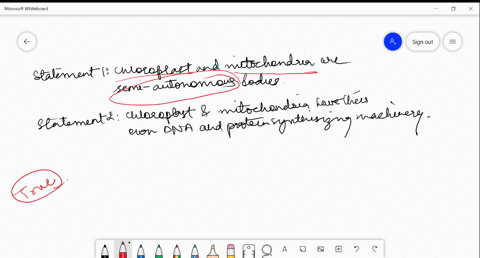 Microsoft Whiteboard
Sign out
Statement 1: chloroplast and mitochondria are
semi-autonomous bodies
Statement 2: chloroplast & mitochondria have their
own DNA and protein synthesizing machinery.
True